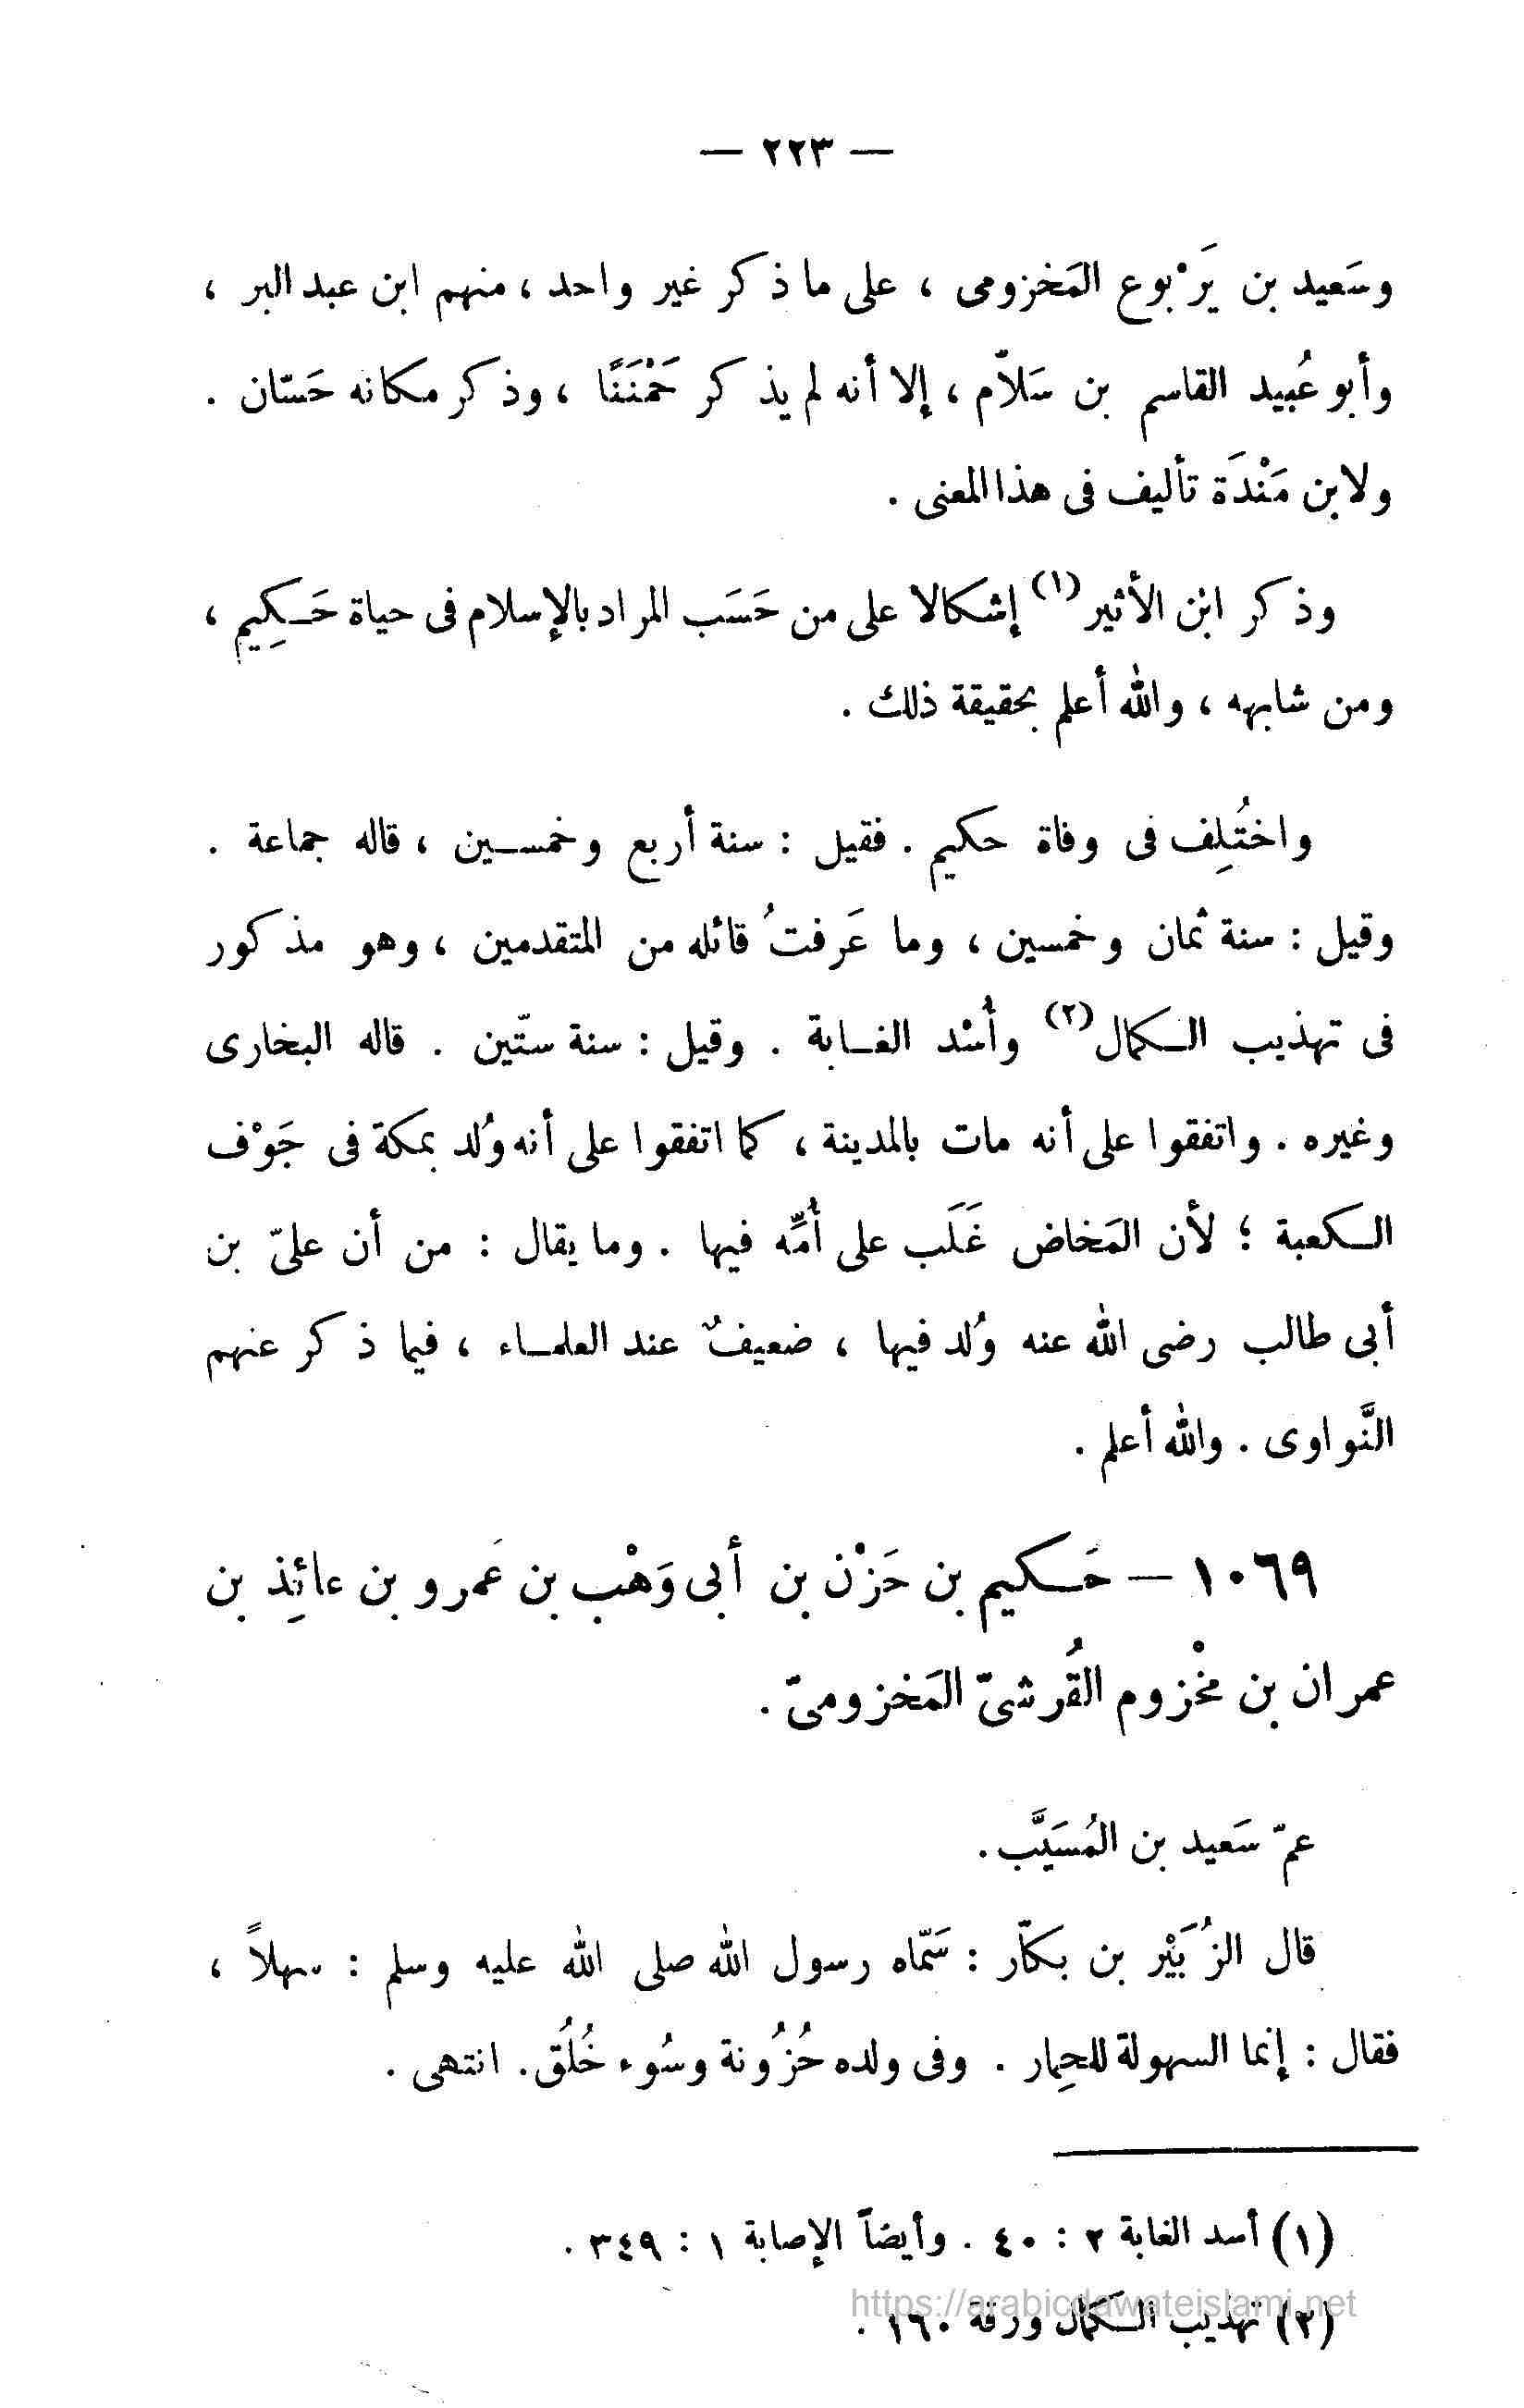 — ٢٢٣ —
وسَعيد بن يَرْبوع المَخزومى ، على ما ذكر غير واحد ، منهم ابن عبد البر ،
وأبو عُبيد القاسم بن سَلاّم ، إلا أنه لم يذكر حَمْنَنًا ، وذكر مكانه حَسّان .
ولابن مَنْدَة تأليف فى هذا المعنى .
وذكر ابن الأثير(١) إشكالا على من حَسَب المراد بالإسلام فى حياة حَكِيم ،
ومن شابهه ، والله أعلم بحقيقة ذلك .
واختُلِف فى وفاة حكيم . فقيل : سنة أربع وخمسين ، قاله جماعة .
وقيل : سنة ثمان وخمسين ، وما عَرفتُ قائله من المتقدمين ، وهو مذكور
فى تهذيب الكمال(٢) وأُسْد الغابة . وقيل : سنة ستّين . قاله البخارى
وغيره . واتفقوا على أنه مات بالمدينة ، كما اتفقوا على أنه وُلد بمكة فى جَوْف
الكعبة ؛ لأن المَخاض غَلَب على أُمِّه فيها . وما يقال : من أن علىّ بن
أبى طالب رضى الله عنه وُلد فيها ، ضعيفٌ عند العلماء ، فيما ذكر عنهم
النَّواوى . والله أعلم .
١٠٦٩ — حَكيم بن حَزْن بن أبى وَهْب بن عَمرو بن عائِذ بن
عمران بن مخْزوم القُرشىّ المَخزومىّ .
عمّ سَعيد بن المُسَيَّب .
قال الزُبَيْر بن بكّار : سَمّاه رسول الله صلى الله عليه وسلم : سهلاً ،
فقال : إنما السهولة للحِمار . وفى ولده حُزُونة وسُوء خُلُق . انتهى .
(١) أسد الغابة ٢ : ٤٠ . وأيضاً الإصابة ١ : ٣٤٩ .
(٢) تهذيب الكمال ورقة ١٦٠ .
https://arabicdawateislami.net